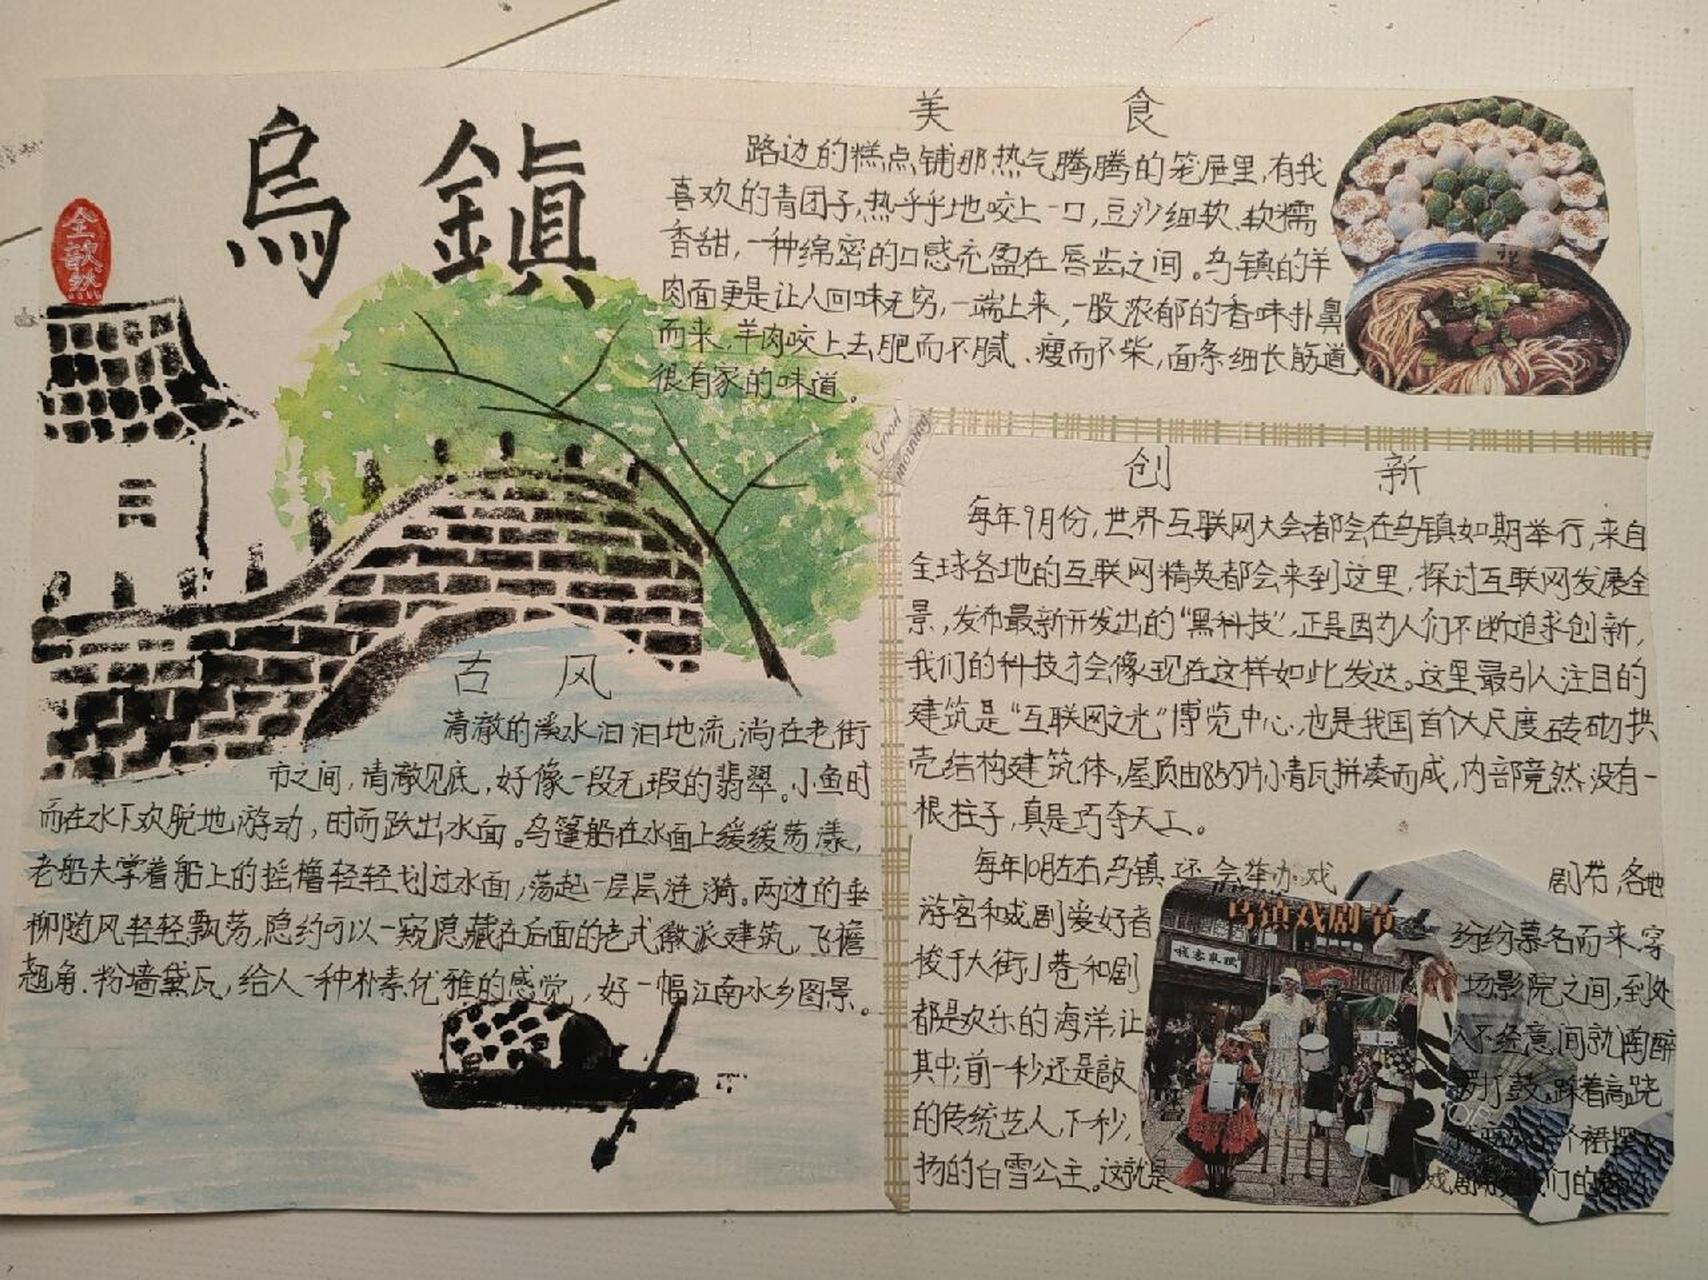 烏鎮
全歆然
美食
路边的糕点铺那热气腾腾的笼屉里,有我
喜欢的青团子,热乎乎地咬上一口,豆沙细软、软糯
香甜,一种绵密的口感充盈在唇齿之间。乌镇的羊
肉面更是让人回味无穷,一端上来,一股浓郁的香味扑鼻
而来,羊肉咬上去肥而不腻、瘦而不柴,面条细长筋道,
很有家的味道。
Good morning
古风
清澈的溪水汩汩地流淌在老街
市之间,清澈见底,好像一段无瑕的翡翠。小鱼时
而在水下欢脱地游动,时而跃出水面。乌篷船在水面上缓缓荡漾,
老船夫掌着船上的摇橹轻轻划过水面,荡起一层层涟漪。两边的垂
柳随风轻轻飘荡,隐约可以一窥隐藏在后面的老式徽派建筑,飞檐
翘角、粉墙黛瓦,给人一种朴素优雅的感觉,好一幅江南水乡图景。
创新
每年9月份,世界互联网大会都会在乌镇如期举行,来自
全球各地的互联网精英都会来到这里,探讨互联网发展全
景,发布最新开发出的“黑科技”,正是因为人们不断追求创新,
我们的科技才会像现在这样如此发达。这里最引人注目的
建筑是“互联网之光”博览中心,也是我国首个大尺度砖砌拱
壳结构建筑体,屋顶由85万片小青瓦拼凑而成,内部竟然没有一
根柱子,真是巧夺天工。
每年10月左右,乌镇还会举办戏剧节,各地
游客和戏剧爱好者纷纷慕名而来,穿
梭于大街小巷和剧场影院之间,到处
都是欢乐的海洋,让人不经意间就陶醉
其中;前一秒还是敲锣打鼓,踩着高跷
的传统艺人,下一秒,个裙摆
扬的白雪公主。这就是戏剧们的
乌镇戏剧节